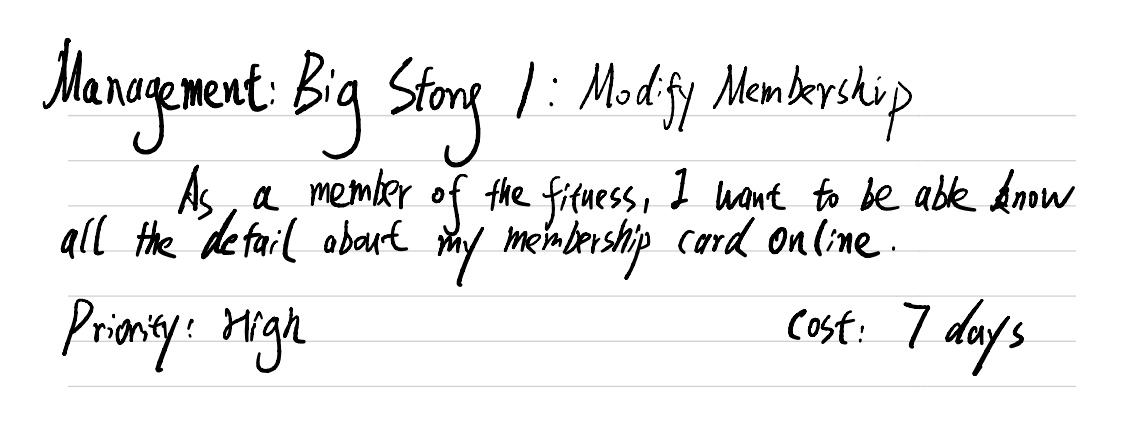 Management: Big Stong 1: Modify Membership
As a member of the fitness, I want to be able know
all the detail about my membership card online.
Priority: High Cost: 7 days